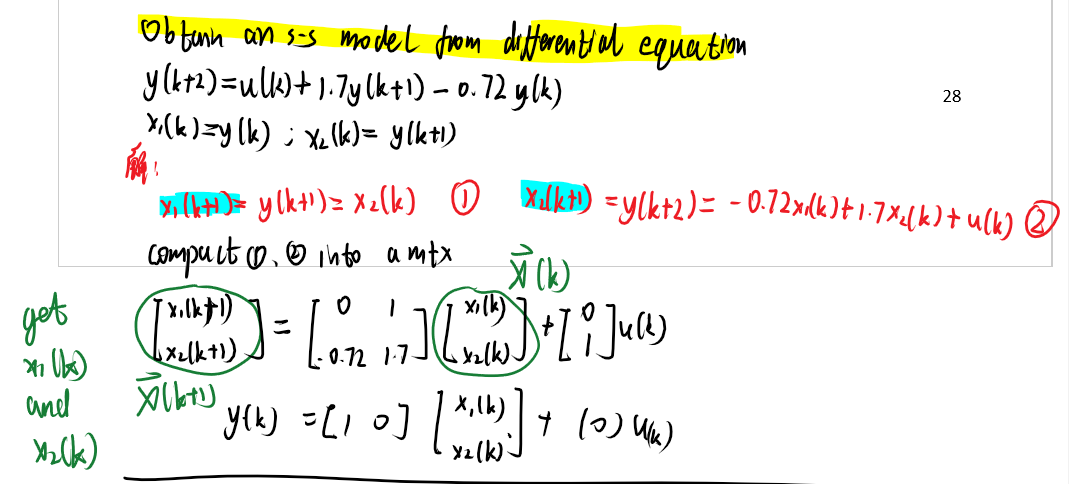 Obtain an s-s model from differential equation
y(k+2)=u(k)+1.7y(k+1)-0.72y(k)
28
x₁(k)=y(k) ; x₂(k)= y(k+1)
解:
x₁(k+1)= y(k+1)= x₂(k) ① x₂(k+1) =y(k+2)= -0.72x₁(k)+1.7x₂(k)+u(k) ②
compact ①、② into a mtx
x⃗(k)
[x₁(k+1) x₂(k+1)] = [0 1 -0.72 1.7] [x₁(k) x₂(k)] + [0 1] u(k)
x⃗(k+1)
get
x₁(k)
and
x₂(k)
y(k) =[1 0] [x₁(k) x₂(k)] + (0) u(k)